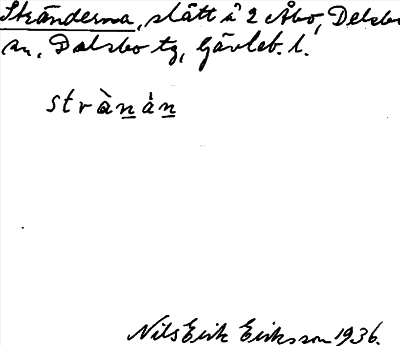 Stränderna, slått å 2 Åbo, Delsbo
sn, Delsbo tg, Gävleb. l.
strànȧn
Nils Erik Eriksson 1936.